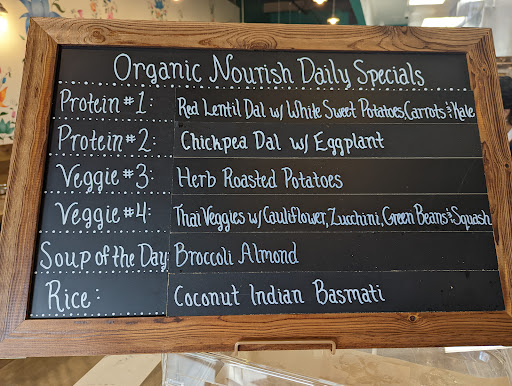 Organic Nourish Daily Specials
Protein #1: Red Lentil Dal w/ White Sweet Potatoes, Carrots & Kale
Protein #2: Chickpea Dal w/ Eggplant
Veggie #3: Herb Roasted Potatoes
Veggie #4: Thai Veggies w/ Cauliflower, Zucchini, Green Beans & Squash
Soup of the Day Broccoli Almond
Rice: Coconut Indian Basmati